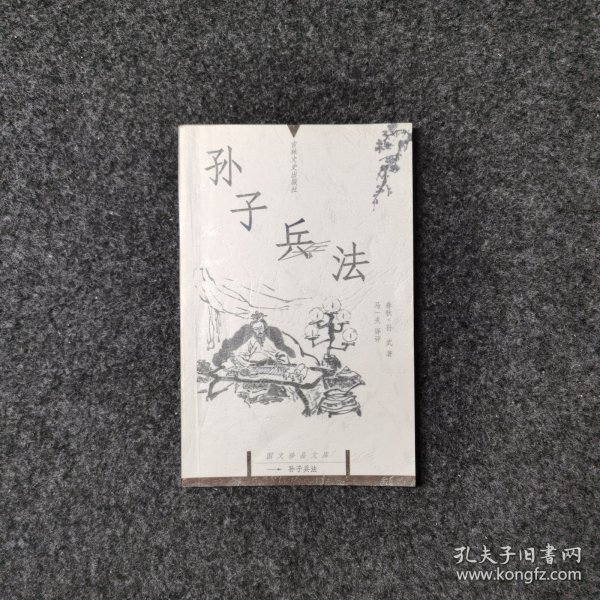 孙子兵法
吉林文史出版社
春秋·孙武 著
马一夫 译评
国文珍品文库
孙子兵法
孔夫子旧書网
www.kongfz.com